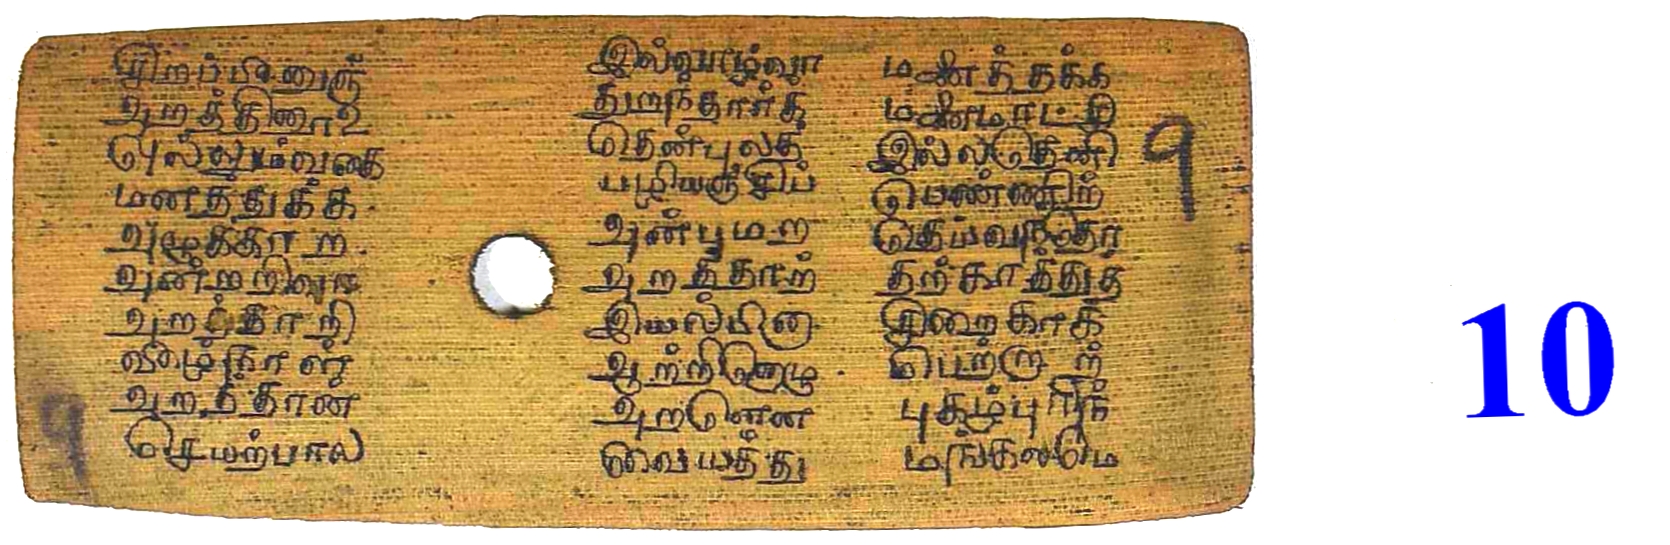 சிறப்பினுஞ்
அறத்தினாஉ
ஒல்லும்வகை
மனத்துக்க
அழுக்காற
அன்றறிவாம
அறத்தாறி
வீழ்நாள்
அறத்தான
செயற்பால
இல்வாழ்வா
துறந்தார்க்
தென்புலத்
பழியஞ்சிப்
அன்புமற
அறத்தாற்
இயல்பின
ஆற்றினொழு
அறனென
வையத்து
மனைத்தக்க
மனைமாட்சி
இல்லதெனி
பெண்ணிற்
தெய்வந்தொ
தற்காத்துத
சிறைகாக்
பெற்றாற்
புகழ்புரிந்
மங்கலமெ
9
9
10